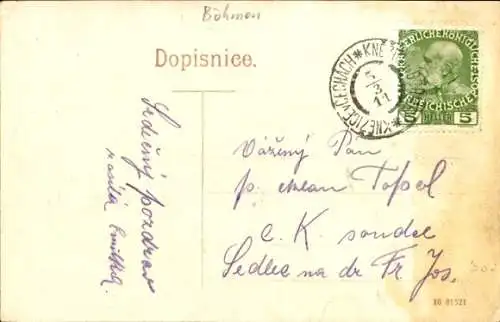 Böhmen
Dopisnice.
KAISERLICHE KÖNIGLICHE
ÖSTERREICHISCHE POST
5 HELLER 5
KNĚŽICE V ČECHÁCH * KNĚ
5/3 11
Srdečný pozdrav
zasílá
Vážený Pan
p. Topol
C. K. soudce
Sedlec na dr Fr. Jos.
30.-
10 01521